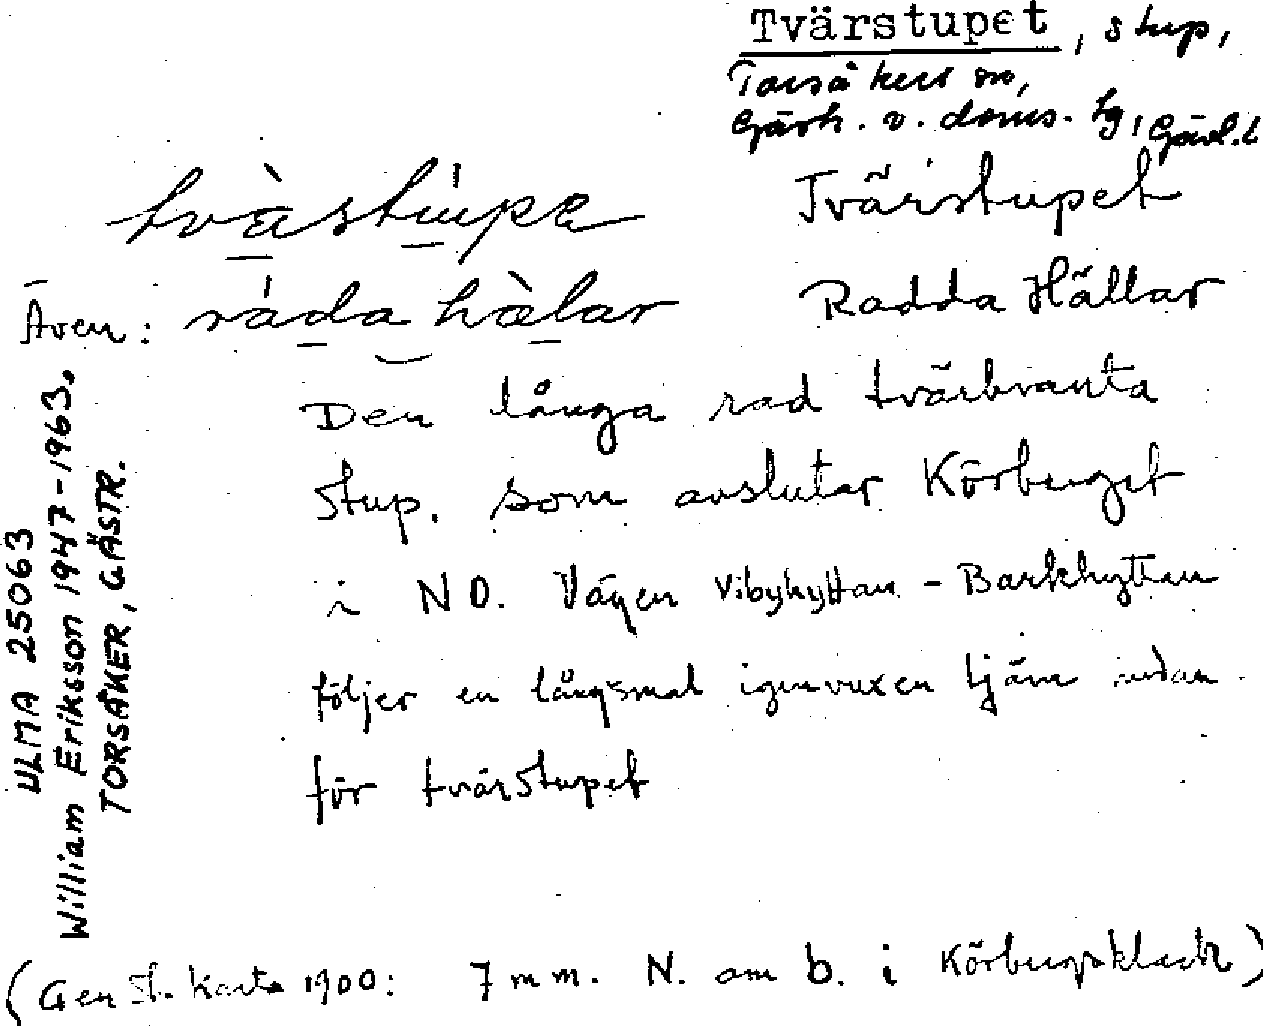 Tvärstupet, stup,
Torsåkers sn,
Gästr. v. doms. tg, Gävl. l.
tvàstúpe Tvärstupet
Även: ráda hàlar Radda Hällar
Den långa rad tvärbranta
stup. som avslutar Körberget
i NO. Vägen Vibyhyttan - Barkhyttan
följer en långsmal igenvuxen tjärn nedan
för tvärstupet
ULMA 25063
William Eriksson 1947-1963.
TORSÅKER, GÄSTR.
(Gen St. Karta 1900: 7 mm. N. om b. i Körbergsklack)